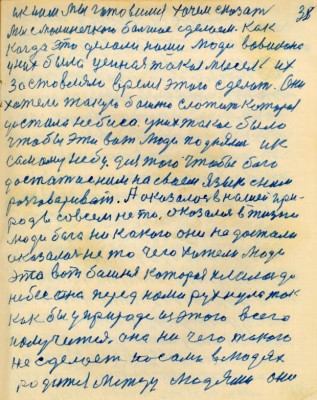 38
ик нам мы готовимся хочем сказат
мы
башню сделаем. Как
когда это делали наши люди вовшовно
у них была ценная такая мысел их
заставляло время этого сделат. Они
хотели такую башню сложит которая
достала небиса. у них такое было
чтобы эти вот люди подняли ик
самому небу. для того чтобы бога
достат и сним на своем языке сним
разговариват. А оказалося в нашей при-
роды совсем не то, оказалос в жизни
люди бога ни какого они не достали
оказалос не то чего хотели люди
эта вот башня которая писалас до
небес она перед нами рухнула так
как бы у природе из этого всего
получится. она ни чего такого
не сделает но сама в людях
родится между людями они